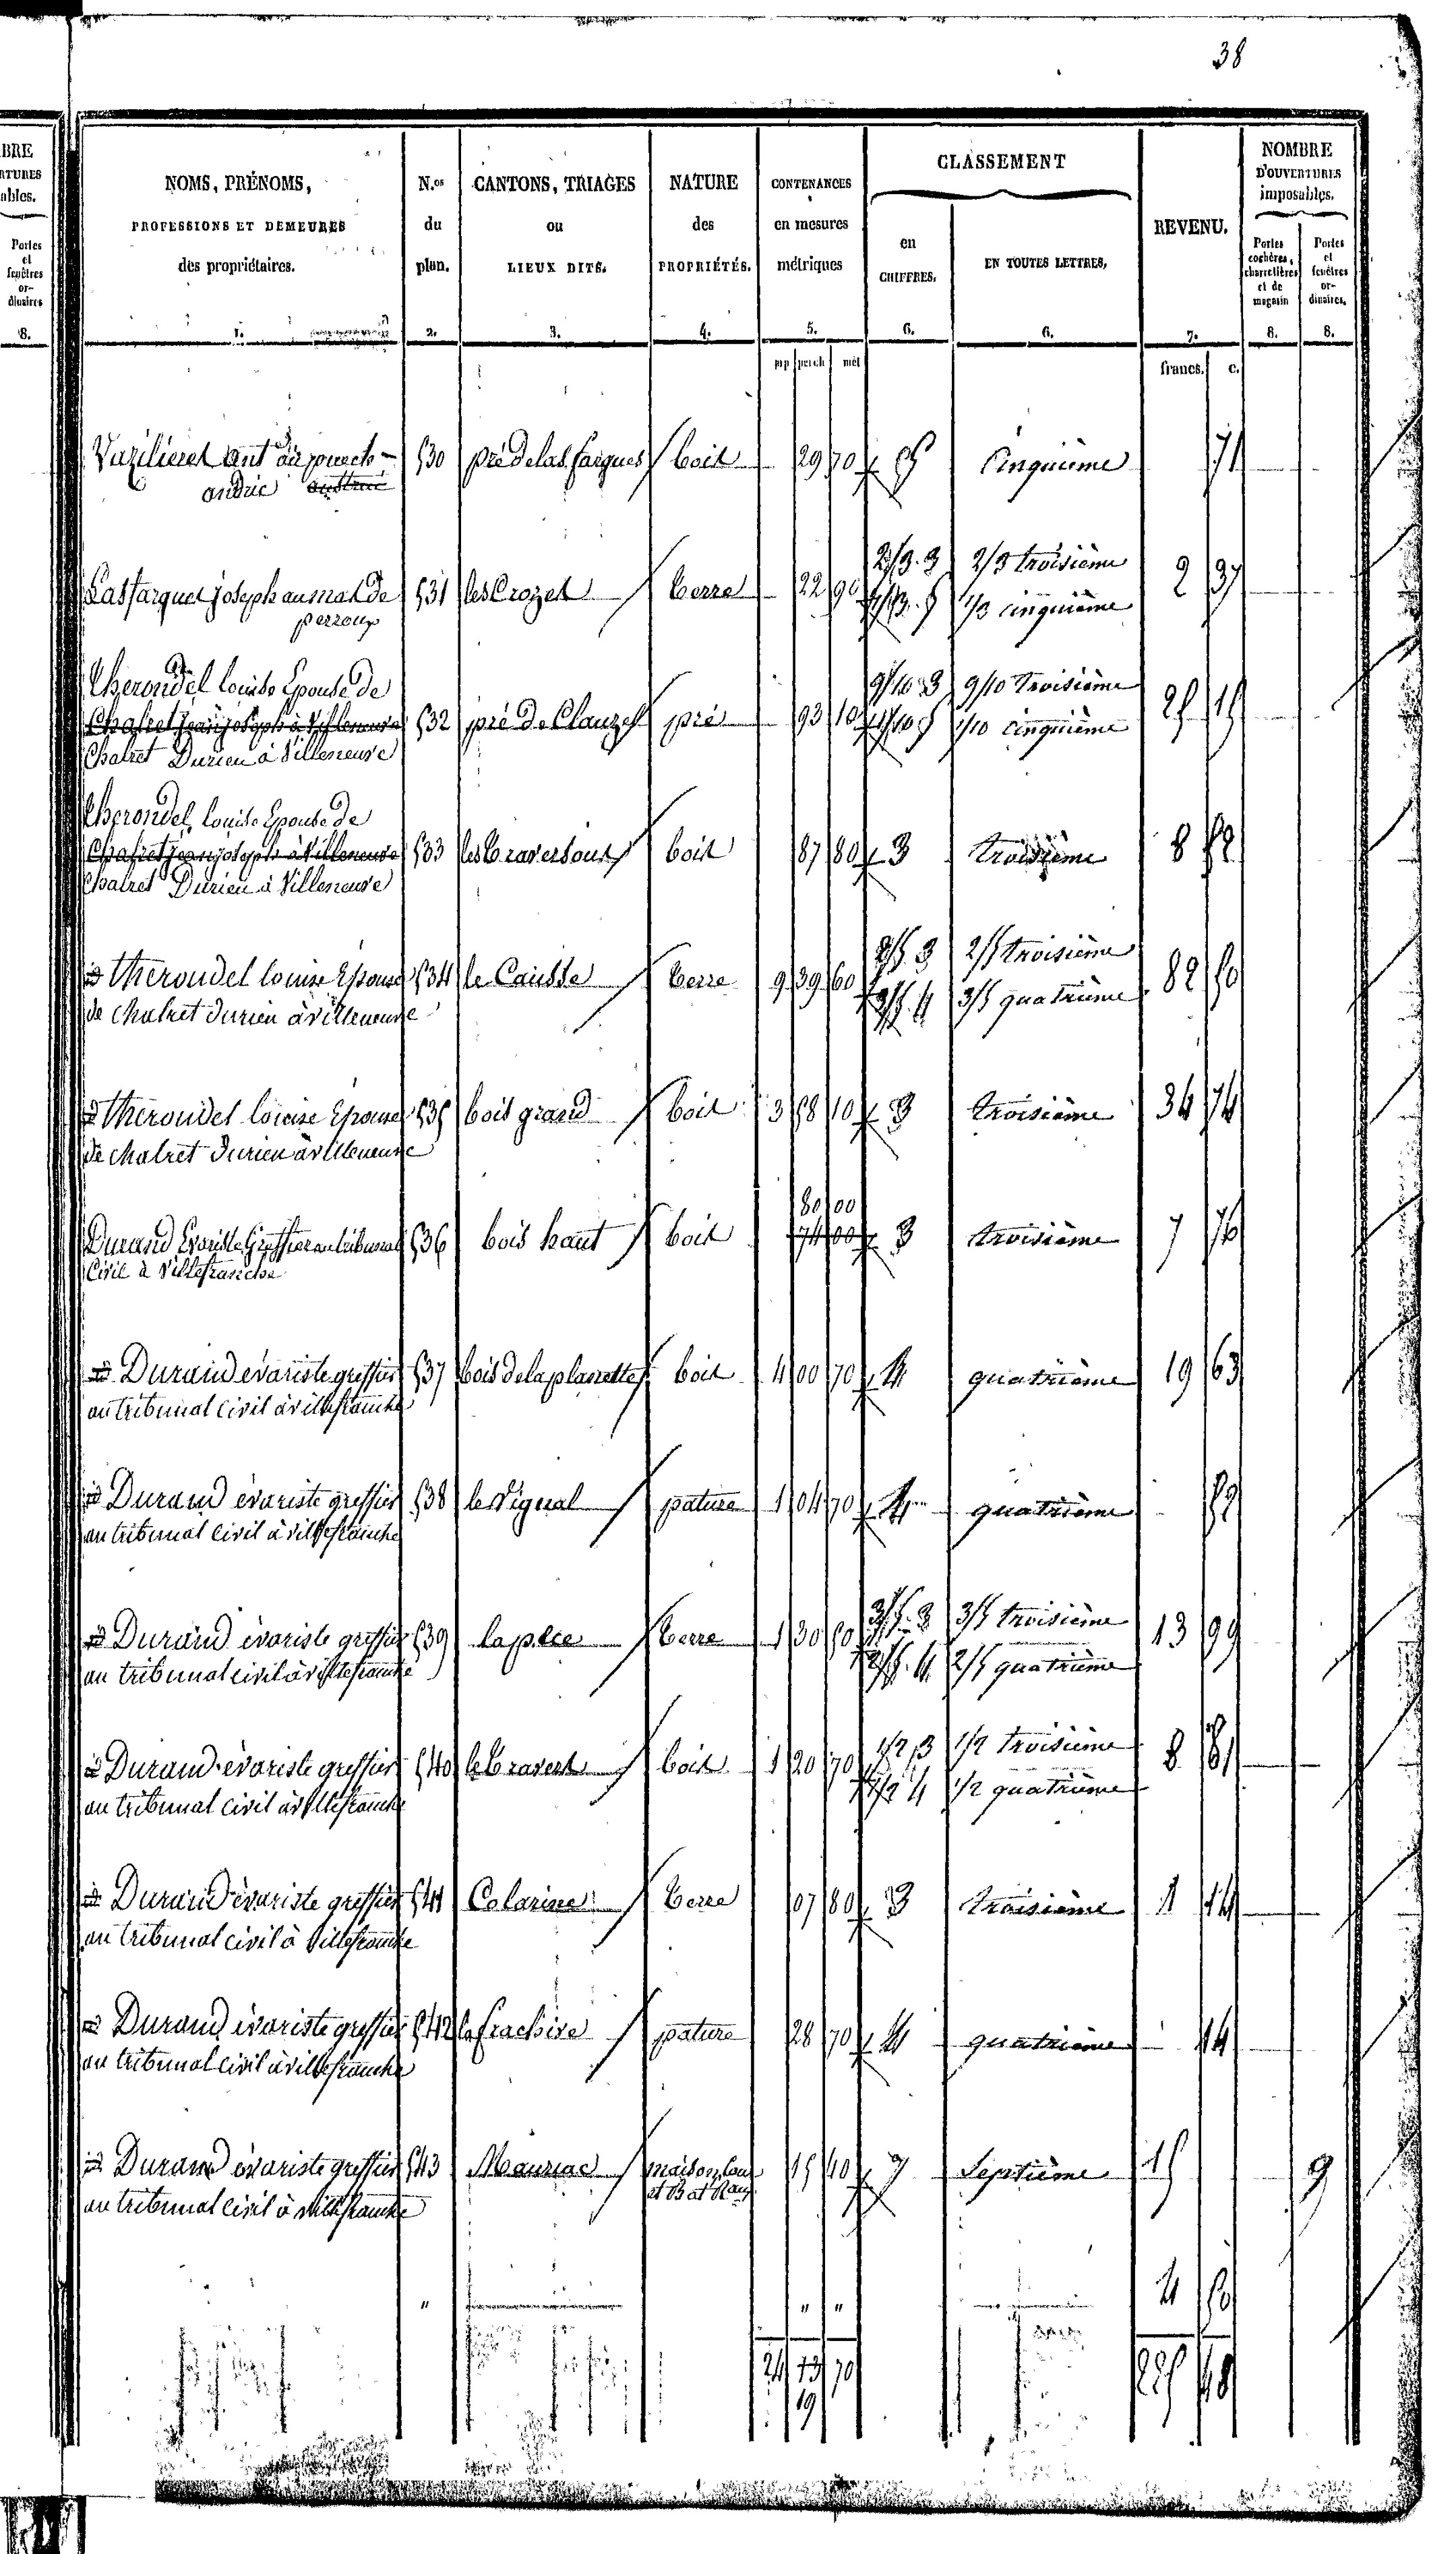 38
BRE
ables.
Portes
et
fenêtres
or-
dinaires
8.
NOMS, PRÉNOMS,
PROFESSIONS ET DEMEURES
des propriétaires.
1.
N.os
du
plan.
2.
CANTONS, TRIAGES
ou
LIEUX DITS.
3.
NATURE
des
PROPRIÉTÉS.
4.
CONTENANCES
en mesures
métriques
5.
CLASSEMENT
en
CHIFFRES.
6.
EN TOUTES LETTRES.
6.
REVENU.
7.
NOMBRE
D'OUVERTURES
imposables.
Portes
cochères,
charretières
et de
magasin
8.
Portes
et
fenêtres
or-
dinaires.
8.
perch mèt
francs. c.
530 pré de las fargues bois 29 70 5 Cinquième 71
andrie
Lasfargues joseph 531 les Crozes terre 22 90 2/3. 3 2/3 troisième 2 37
perroux 1/3. 5 1/3 cinquième
Therondel louise Epouse de 9/10 3 9/10 Troisième
532 pré de Clauzel pré 93 10 1/10 5 1/10 cinquième 25 15
Chalret Durieu à Villeneuve
Therondel louise Epouse de
Chalret jean joseph à Villeneuve 533 les traversous bois 87 80 3 troisième 8 52
Chalret Durieu à Villeneuve
Therondel louise Epouse 534 le Causse terre 9 39 60 2/5. 3 2/5 troisième 82 50
de chalret durieu à villeneuve 3/5. 4 3/5 quatrième
Therondel louise Epouse 535 bois grand bois 3 58 10 3 troisième 34 74
de chalret durieu à villeneuve
80 00
Durand Evariste Greffier au tribunal 536 bois haut bois 74 00 3 troisième 7 76
Civil à Villefranche
Durand évariste greffier 537 bois de la planette bois 4 00 70 4 quatrième 19 63
au tribunal civil à villefranche
Durand évariste greffier 538 le Vignal pature 1 04 70 4 quatrième 52
au tribunal civil à villefranche
Durand évariste greffier 539 terre 1 30 50 3/5. 3 3/5 troisième 13 99
au tribunal civil à villefranche 2/5. 4 2/5 quatrième
Durand évariste greffier 540 le travers bois 1 20 70 1/2 3 1/2 troisième 8 81
au tribunal civil à villefranche 1/2 4 1/2 quatrième
Durand évariste greffier 541 Colarine terre 07 80 3 troisième 1 14
au tribunal civil à Villefranche
Durand évariste greffier 542 pature 28 70 4 quatrième 14
au tribunal civil à villefranche
Durand évariste greffier 543 Mauriac maison 15 40 7 Septième 15 9
au tribunal civil à villefranche et Bat
" " " 4 50
24 13 70 225 48
19